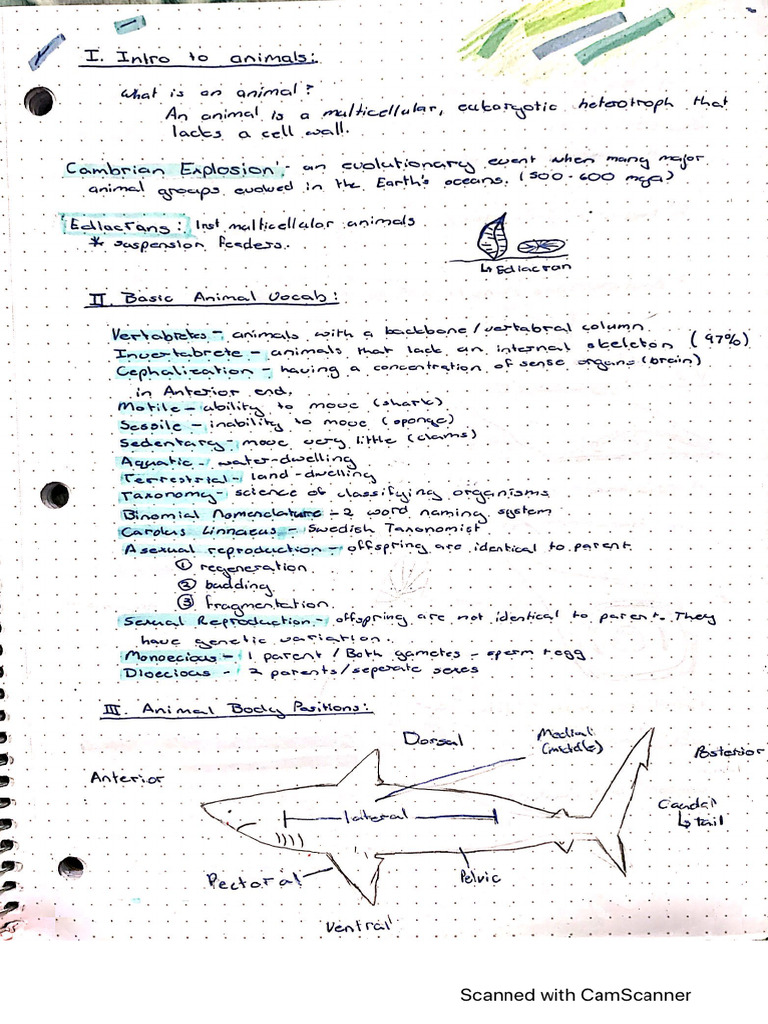 I. Intro to animals:
What is an animal?
An animal is a multicellular, eukaryotic heterotroph that
lacks a cell wall.
Cambrian Explosion - an evolutionary event when many major
animal groups evolved in the Earth's oceans. (500-600 mya)
Ediacrans: 1st multicellular animals
* suspension feeders.
↳ Ediacran
II. Basic Animal Vocab:
Vertabretes - animals with a backbone/vertabral column
Invertabrete - animals that lack an internal skeleton (97%)
Cephalization - having a concentration of sense organs (brain)
in Anterior end.
Motile - ability to move (shark)
Sessile - inability to move (sponge)
Sedentary - move very little (clams)
Aquatic - water-dwelling
Terrestrial - land-dwelling
Taxonomy - science of classifying organisms
Binomial Nomenclature - 2 word naming system
Carolus Linnaeus - Swedish Taxonomist
Asexual reproduction - offspring are identical to parent
① regeneration
② budding
③ fragmentation.
Sexual Reproduction - offspring are not identical to parent. They
have genetic variation.
Monoecious - 1 parent / Both gametes - sperm + egg
Dioecious - 2 parents/seperate sexes
III. Animal Body Positions:
Dorsal
Medial
(middle)
Posterior
Anterior
Caudal
↳ tail
lateral
Pectoral
Pelvic
Ventral
Scanned with CamScanner